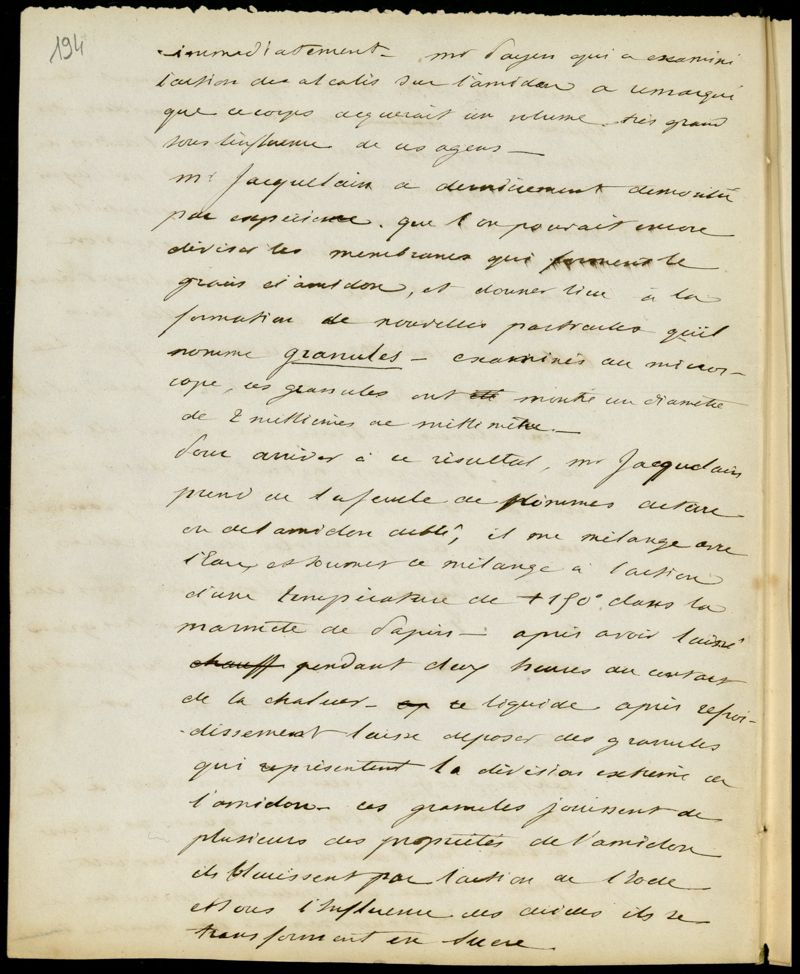 194
immediatement – mr Payen qui a examiné
l'action des alcalis sur l'amidon a remarqué
que ce corps acquerait un volume très grand
sous l'influence de ces agens –
mr Jacquelain a dernièrement demontré
par experience que l'on pouvait encore
diviser les membranes qui forment le
grain d'amidon, et donner lieu à la
formation de nouvelles particules qu'il
nomme granules – examinés au micros-
cope, ces granules ont été montré un diamètre
de 2 millièmes de millimètre –
Pour arriver à ce résultat, mr Jacquelain
prend de la fecule de pommes de terre
ou de l'amidon de blé, il me mélange avec
l'Eau et soumet ce mélange à l'action
d'une température de +150° dans la
marmite de Papin – après avoir laissé
chauff pendant deux heures au contact
de la chaleur – ap ce liquide après refroi-
dissement laisse deposer des granules
qui représentent la division extreme de
l'amidon – ces granules jouissent de
plusieurs des propriétés de l'amidon
ils bleuissent par l'action de l'Iode
et sous l'Influence des acides ils se
transforment en sucre